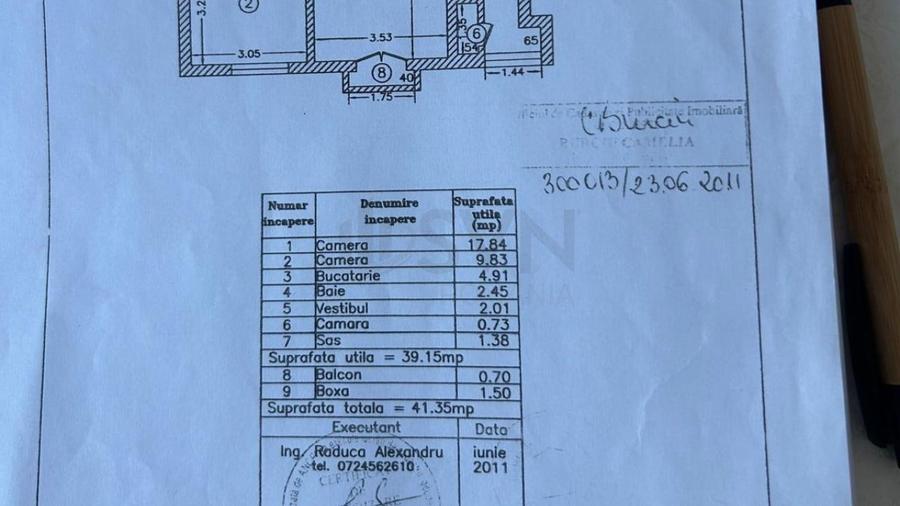 3.2
2
3.05
3.53
8
40
1.75
6
54
65
1.44
Publicitate Imobiliară
CAMELIA
300013/23.06.2011
Numar incapere Denumire incapere Suprafata utila (mp)
1 Camera 17.84
2 Camera 9.83
3 Bucatarie 4.91
4 Baie 2.45
5 Vestibul 2.01
6 Camara 0.73
7 Sas 1.38
Suprafata utila = 39.15mp
8 Balcon 0.70
9 Boxa 1.50
Suprafata totala = 41.35mp
Executant Data
Ing. Raduca Alexandru iunie
tel. 0724562610 2011